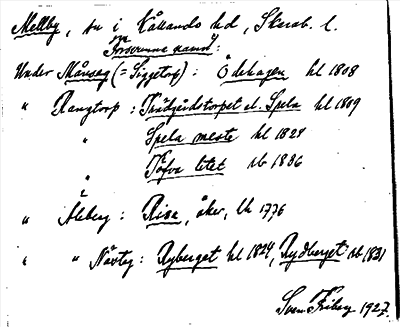 Mellby, sn i Kållands hd, Skarab. l.
Försvunna namn:
Under Månseg (= Siggetorp): Ödehagen hl 1808
" Rangtorp: Skidgårdstorpet el. Spela hl 1809
" Spela meste hl 1824
" Töfva letet rb 1886
" Åleberg: Risa, åker, lh 1776
" " Nästeg: Ryberget hl 1824, Rydberget rb 1831
Sven Friberg 1927.